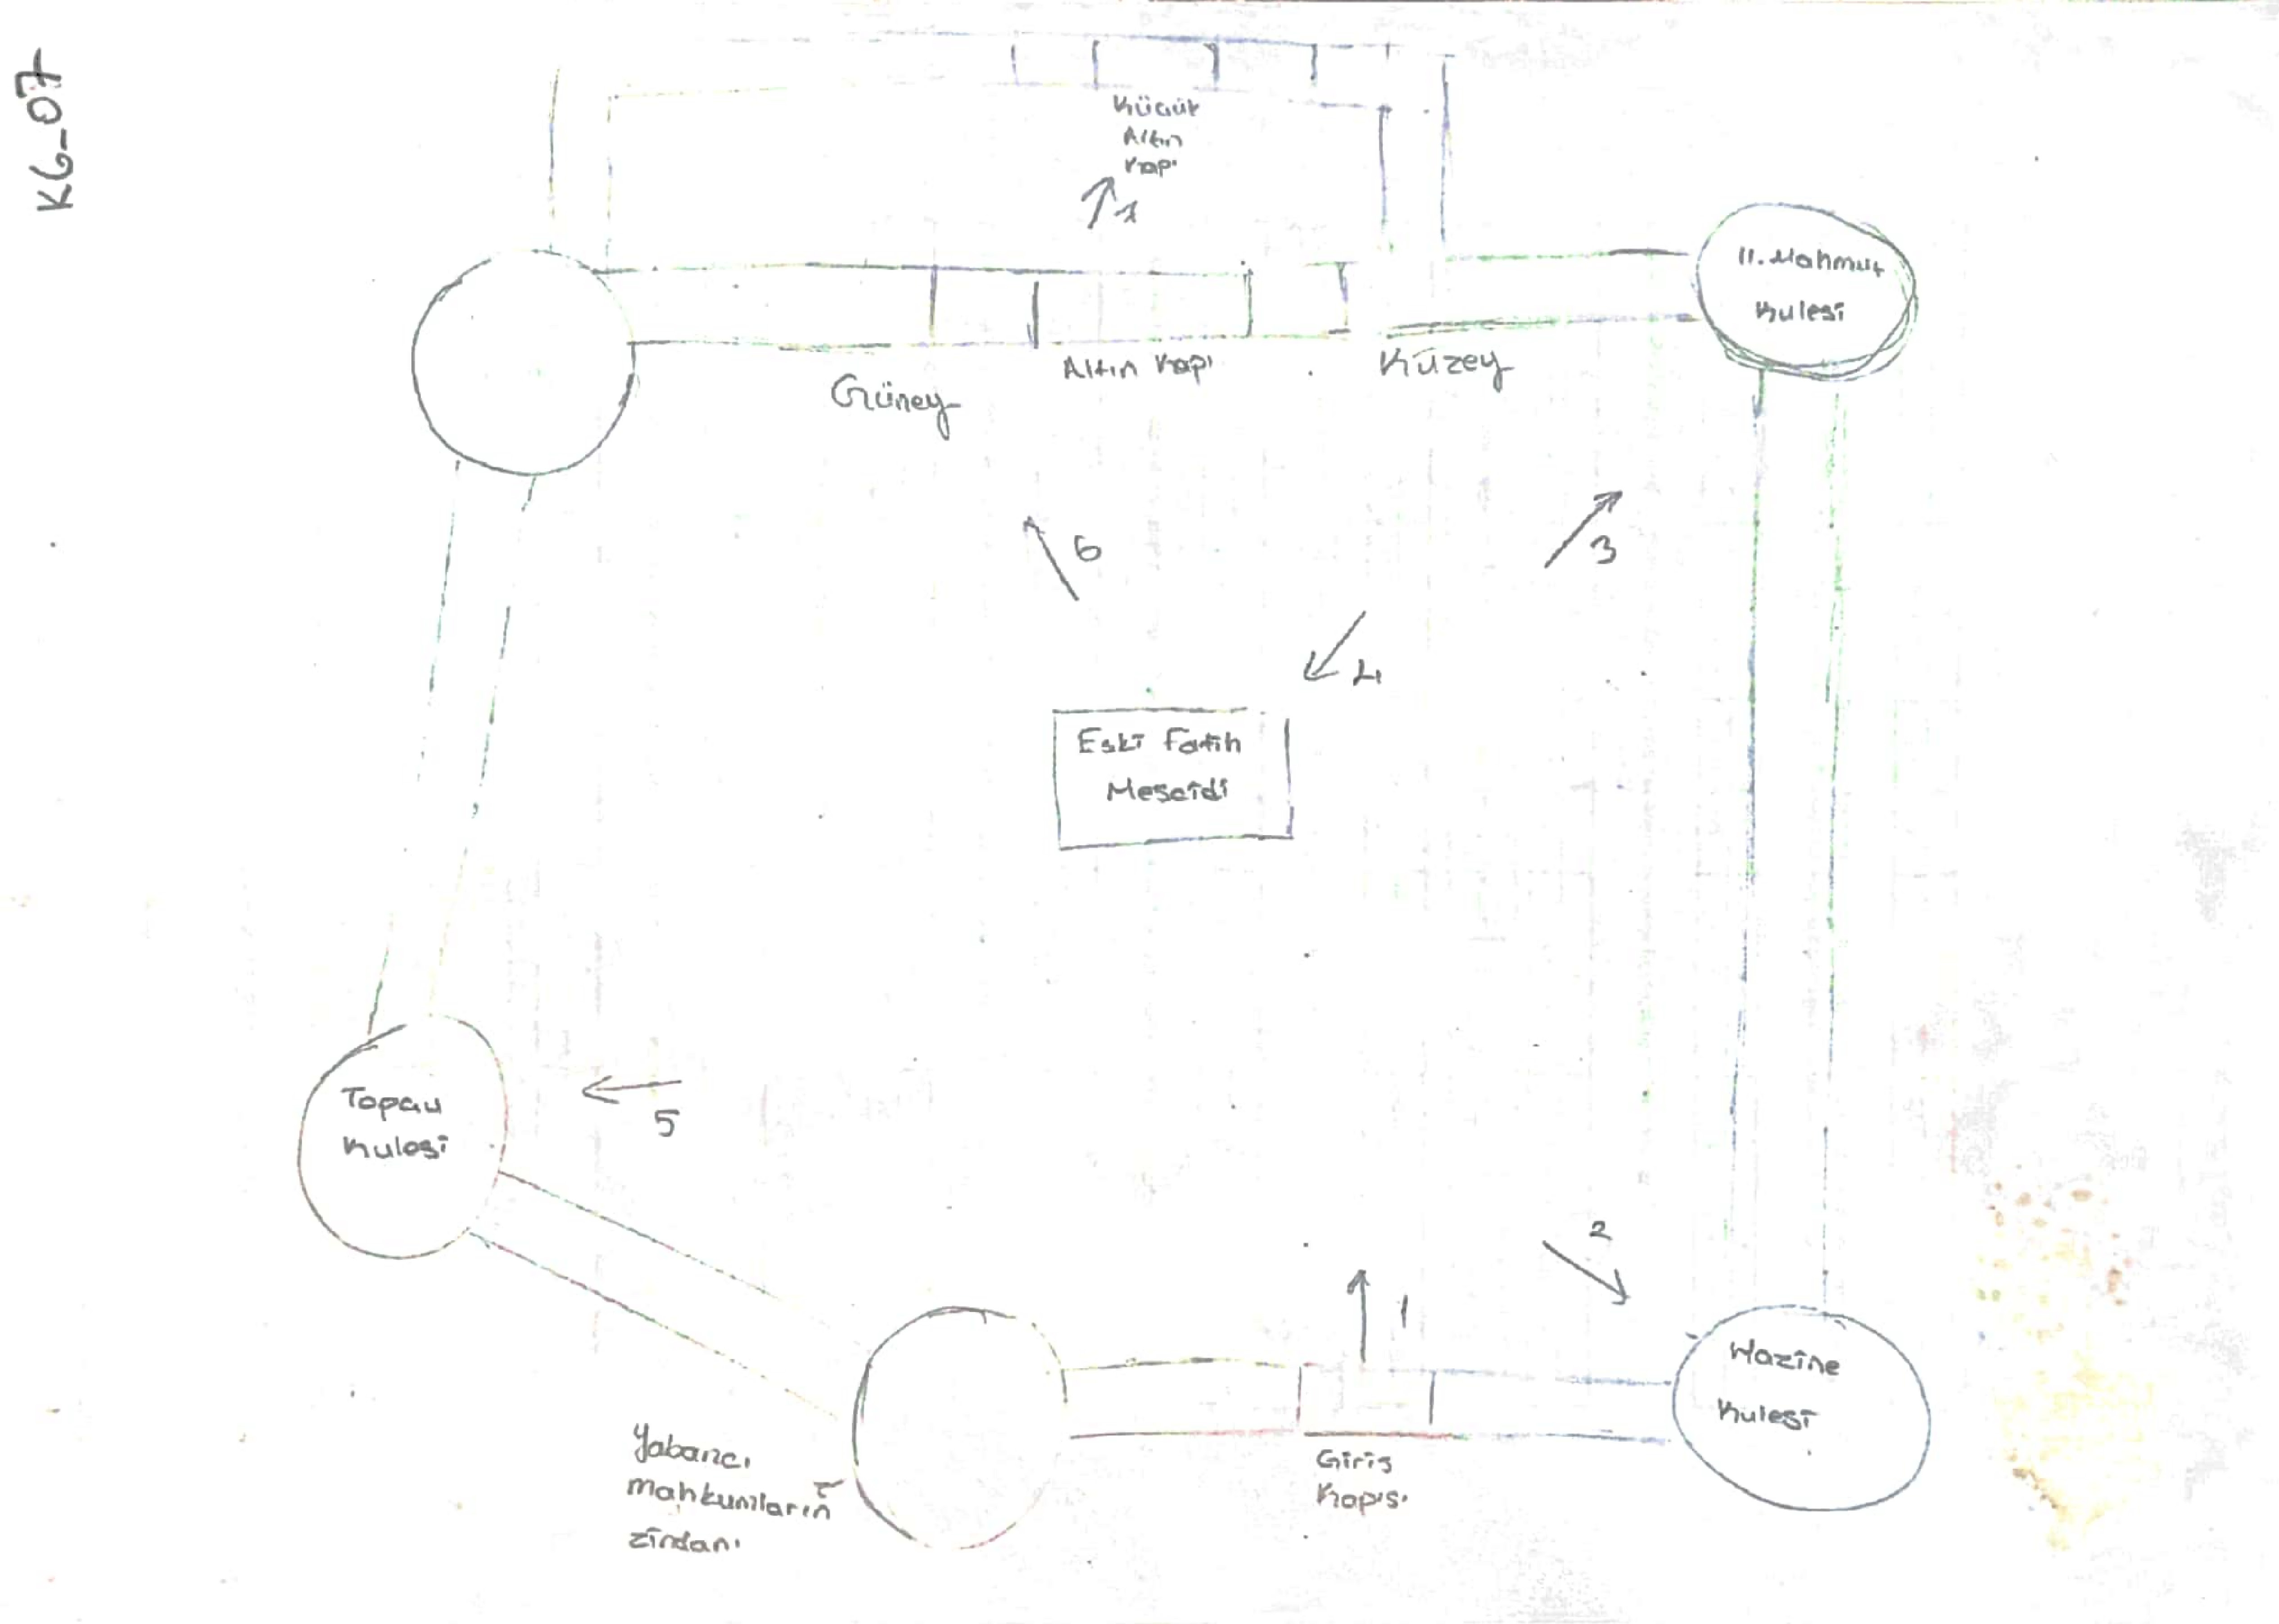 KG_07
Küçük
Altın
Kapı
7
II. Mahmut
Kulesi
Güney
Altın Kapı
Kuzey
6
3
4
Eski Fatih
Mescidi
Topçu
Kulesi
5
2
1
Hazine
Kulesi
Giriş
Kapısı
Yabancı
mahkumların
zindanı